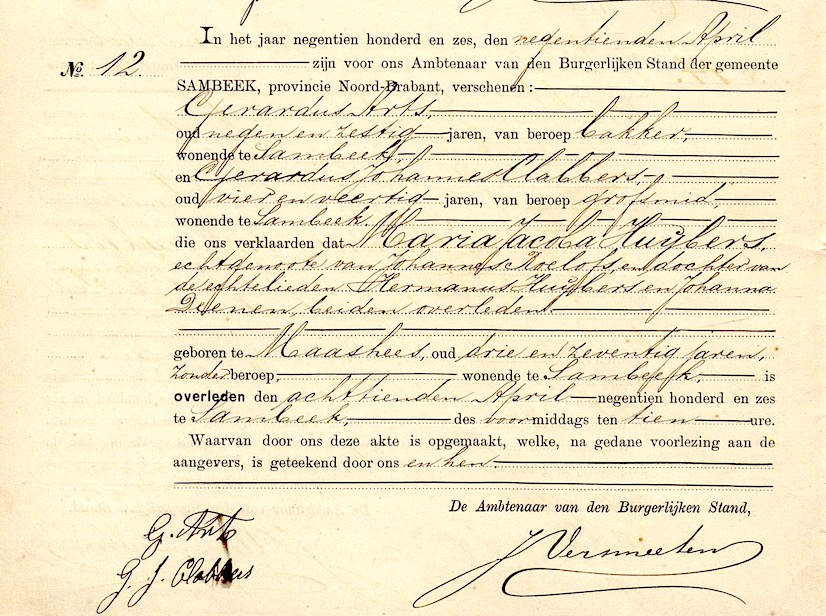 In het jaar negentien honderd en zes, den negentienden April
No. 12. zijn voor ons Ambtenaar van den Burgerlijken Stand der gemeente
SAMBEEK, provincie Noord-Brabant, verschenen:
Gerardus Arts,
oud negen en zestig jaren, van beroep bakker,
wonende te Sambeek,
en Gerardus Johannes Clabbers,
oud vier en veertig jaren, van beroep grofsmid,
wonende te Sambeek.
die ons verklaarden dat Maria Jacoba Huijbers,
echtgenoote van Johannes Roelofs, en dochter van
de echtelieden Hermanus Huijbers en Johanna
Deenen, beiden overleden.
geboren te Maashees, oud drie en zeventig jaren,
zonder beroep, wonende te Sambeek, is
overleden den achttienden April negentien honderd en zes
te Sambeek, des voormiddags ten tien ure.
Waarvan door ons deze akte is opgemaakt, welke, na gedane voorlezing aan de
aangevers, is geteekend door ons en hen.
De Ambtenaar van den Burgerlijken Stand,
G. Arts
J Vermeeten
G. J. Clabbers